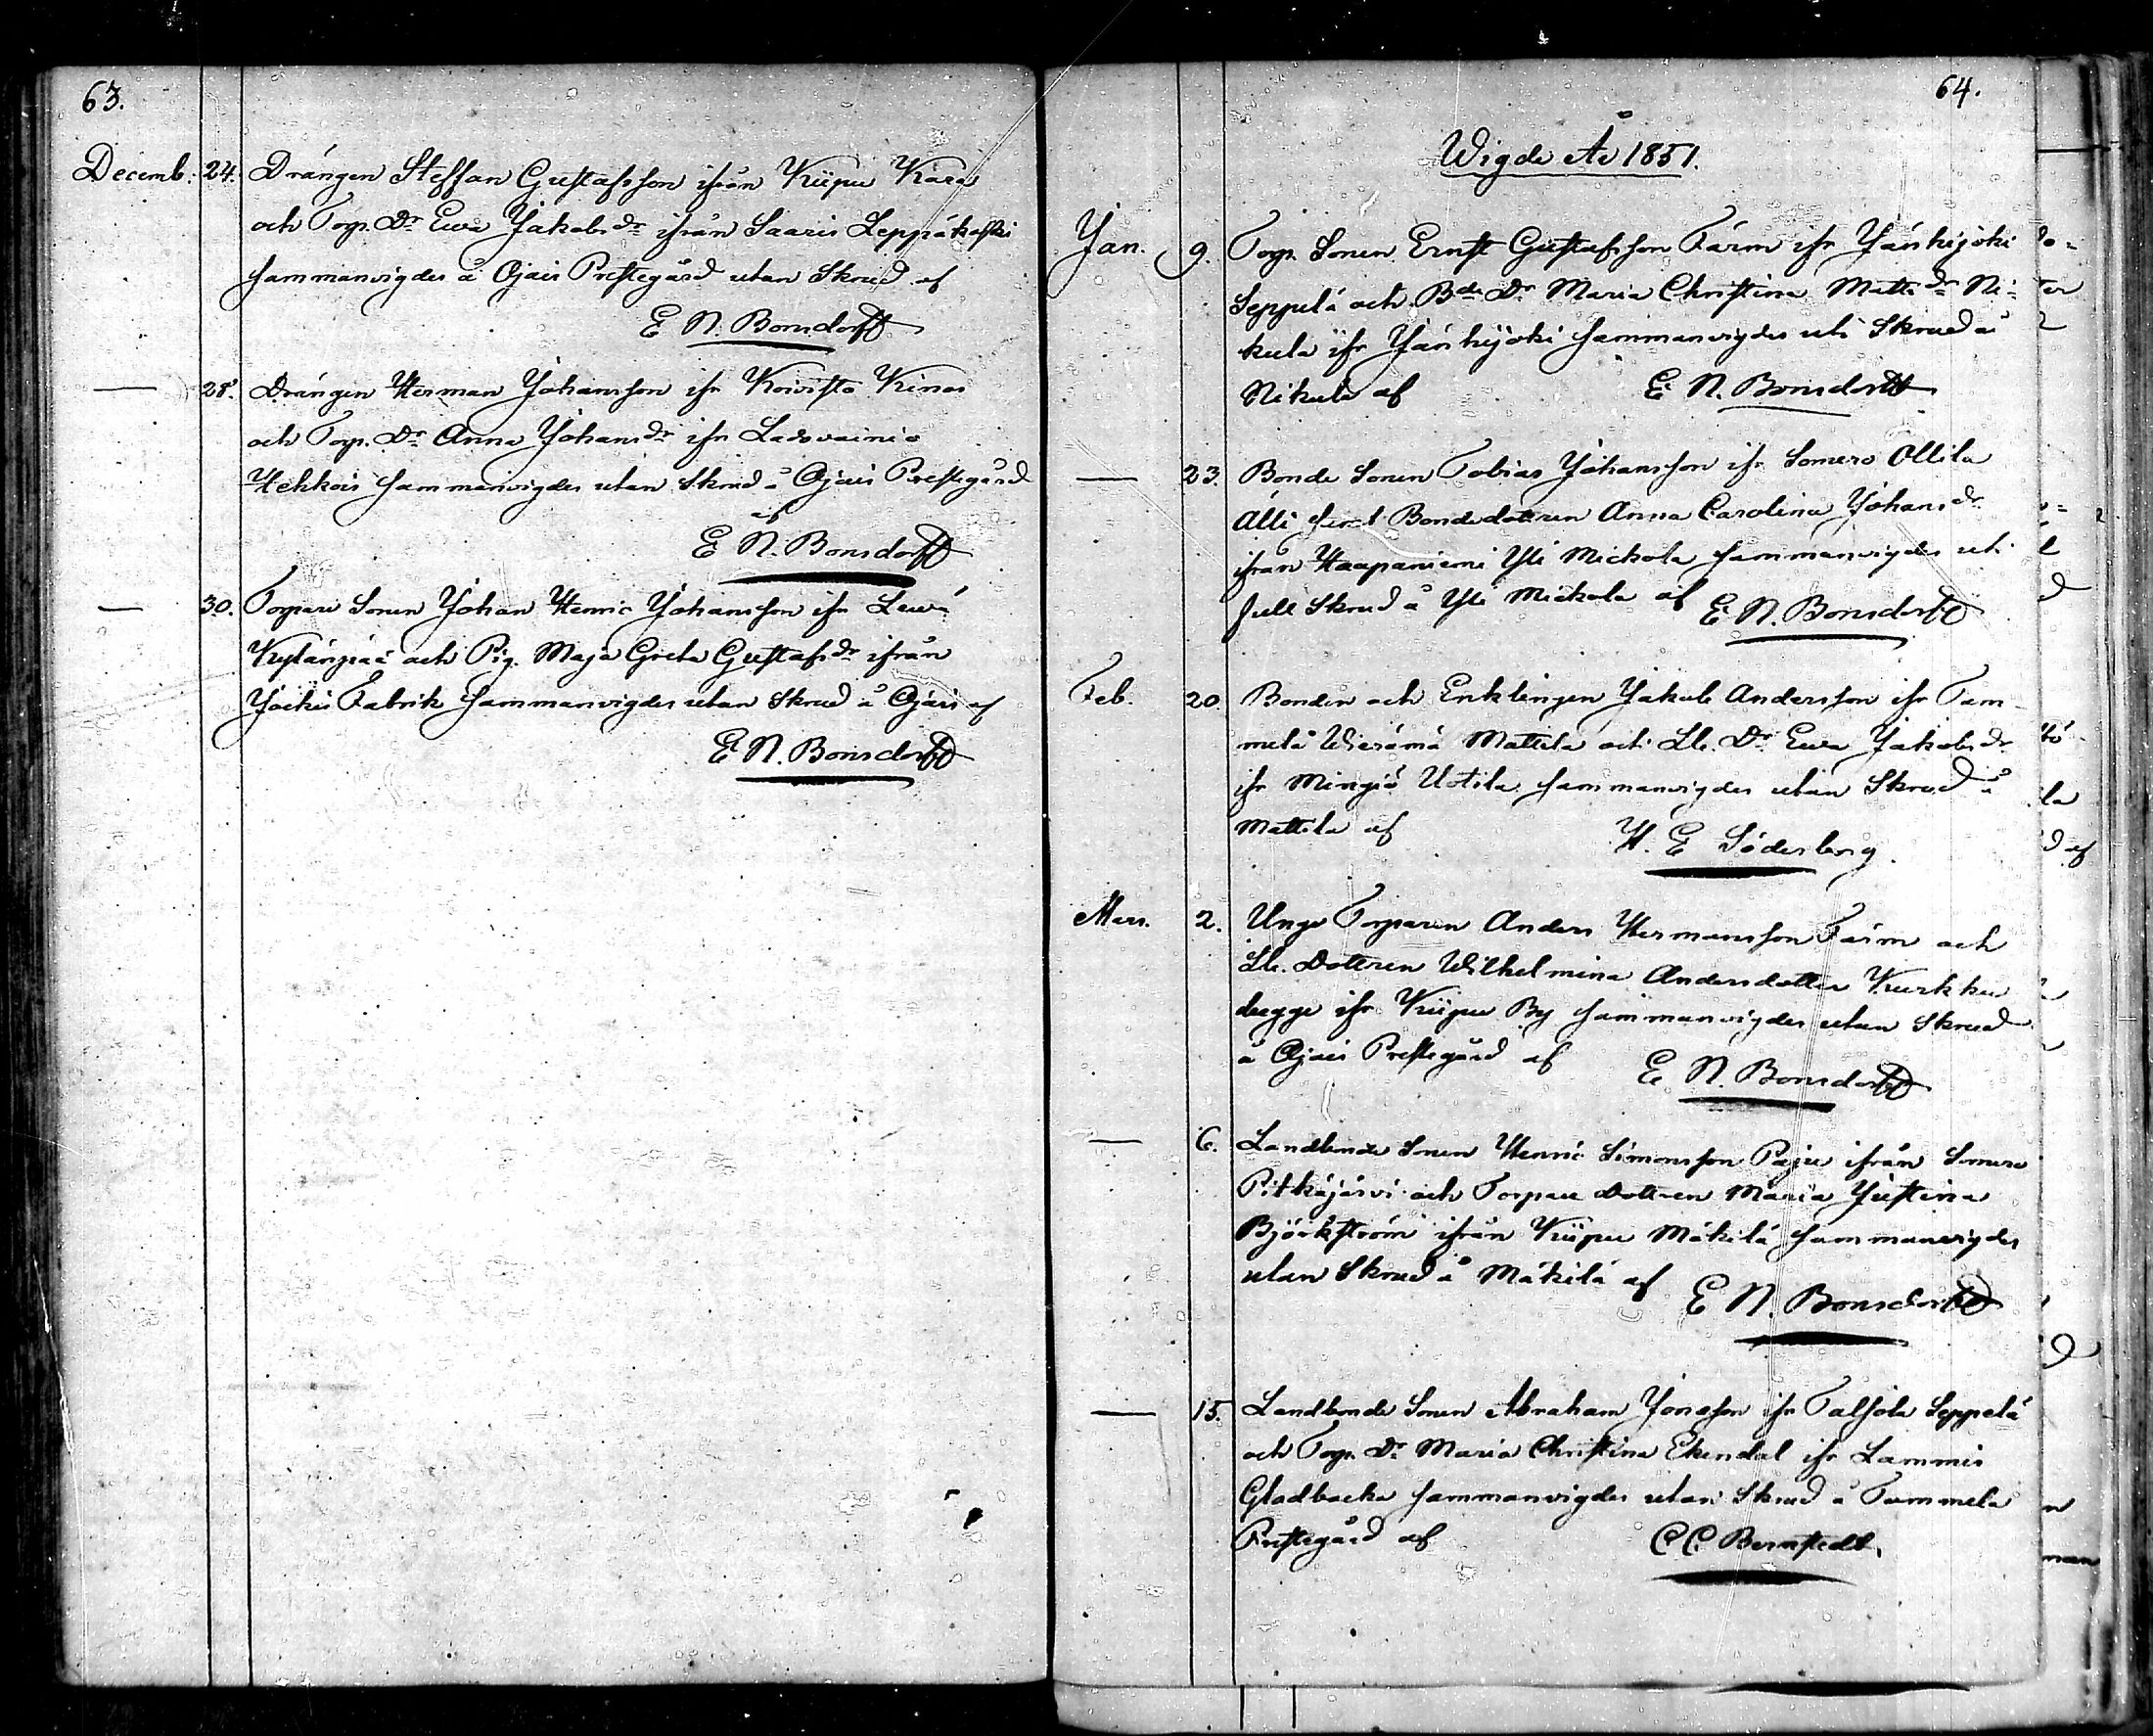 63.
Decemb. 24. Drängen Steffan Gustafsson ifrån Kiipu Kara
och Torp. Dr Ewa Jakobsdr ifrån Saaris Leppäkoski
sammanvigdes å Ojais Prestegård utan Skrud af
E N. Bonsdorff
— 28. Drängen Herman Johansson ifr Koivisto Kinos
och Torp. Dr Anna Johansdr ifr Ladovainio
Hekkois sammanvigdes utan Skrud å Ojais Prestegård
af
E N. Bonsdorff
— 30. Torpare Sonen Johan Henric Johansson ifr Lewä
Kylänpää och Pig. Maja Greta Gustafsdr ifrån
Jockis Fabrik sammanvigdes utan Skrud å Ojais af
E N. Bonsdorff
64.
Wigde År 1851.
Jan. 9. Torp. Sonen Ernst Gustafsson Färm ifr Jänhijoki
Seppelä och Bde Dr Maria Christina Mattsdr Ni-
kula ifr Jänhijoki sammanvigdes uti Skrud å
Nikula af E N. Bonsdorff
— 23. Bonde Sonen Tobias Johansson ifr Somero Ollila
Alli samt Bondedottren Anna Carolina Johansdr
ifrån Haapaniemi Yli Mickola sammanvigdes uti
full Skrud å Yli Mickola af E N. Bonsdorff
Feb. 20. Bonden och Enklingen Jakob Andersson ifr Tam-
mela Wieremä Mattila och Lb. Dr Ewa Jakobsdr
ifr Mingiö Uotila sammanvigdes utan Skrud å
Mattila af H. E Söderberg.
Mars. 2. Unge Torparen Anders Hermansson Färm och
Lb. Dottren Wilhelmina Andersdotter Kurkku
begge ifr Kiipu By sammanvigdes utan Skrud
å Ojais Prestegård af E N. Bonsdorff
— 6. Landbonde Sonen Henric Simonsson Paju ifrån Somero
Pitkäjärvi och Torpare Dottren Maria Justina
Björkström ifrån Kiipu Mäkilä sammanvigdes
utan Skrud å Mäkilä af E N. Bonsdorff
— 15. Landbonde Sonen Abraham Jonasson ifr Talsola Seppelä
och Torp. Dr Maria Christina Ekendal ifr Lammis
Gladbacka sammanvigdes utan Skrud å Tammela
Prestegård af C C Bernstedt.